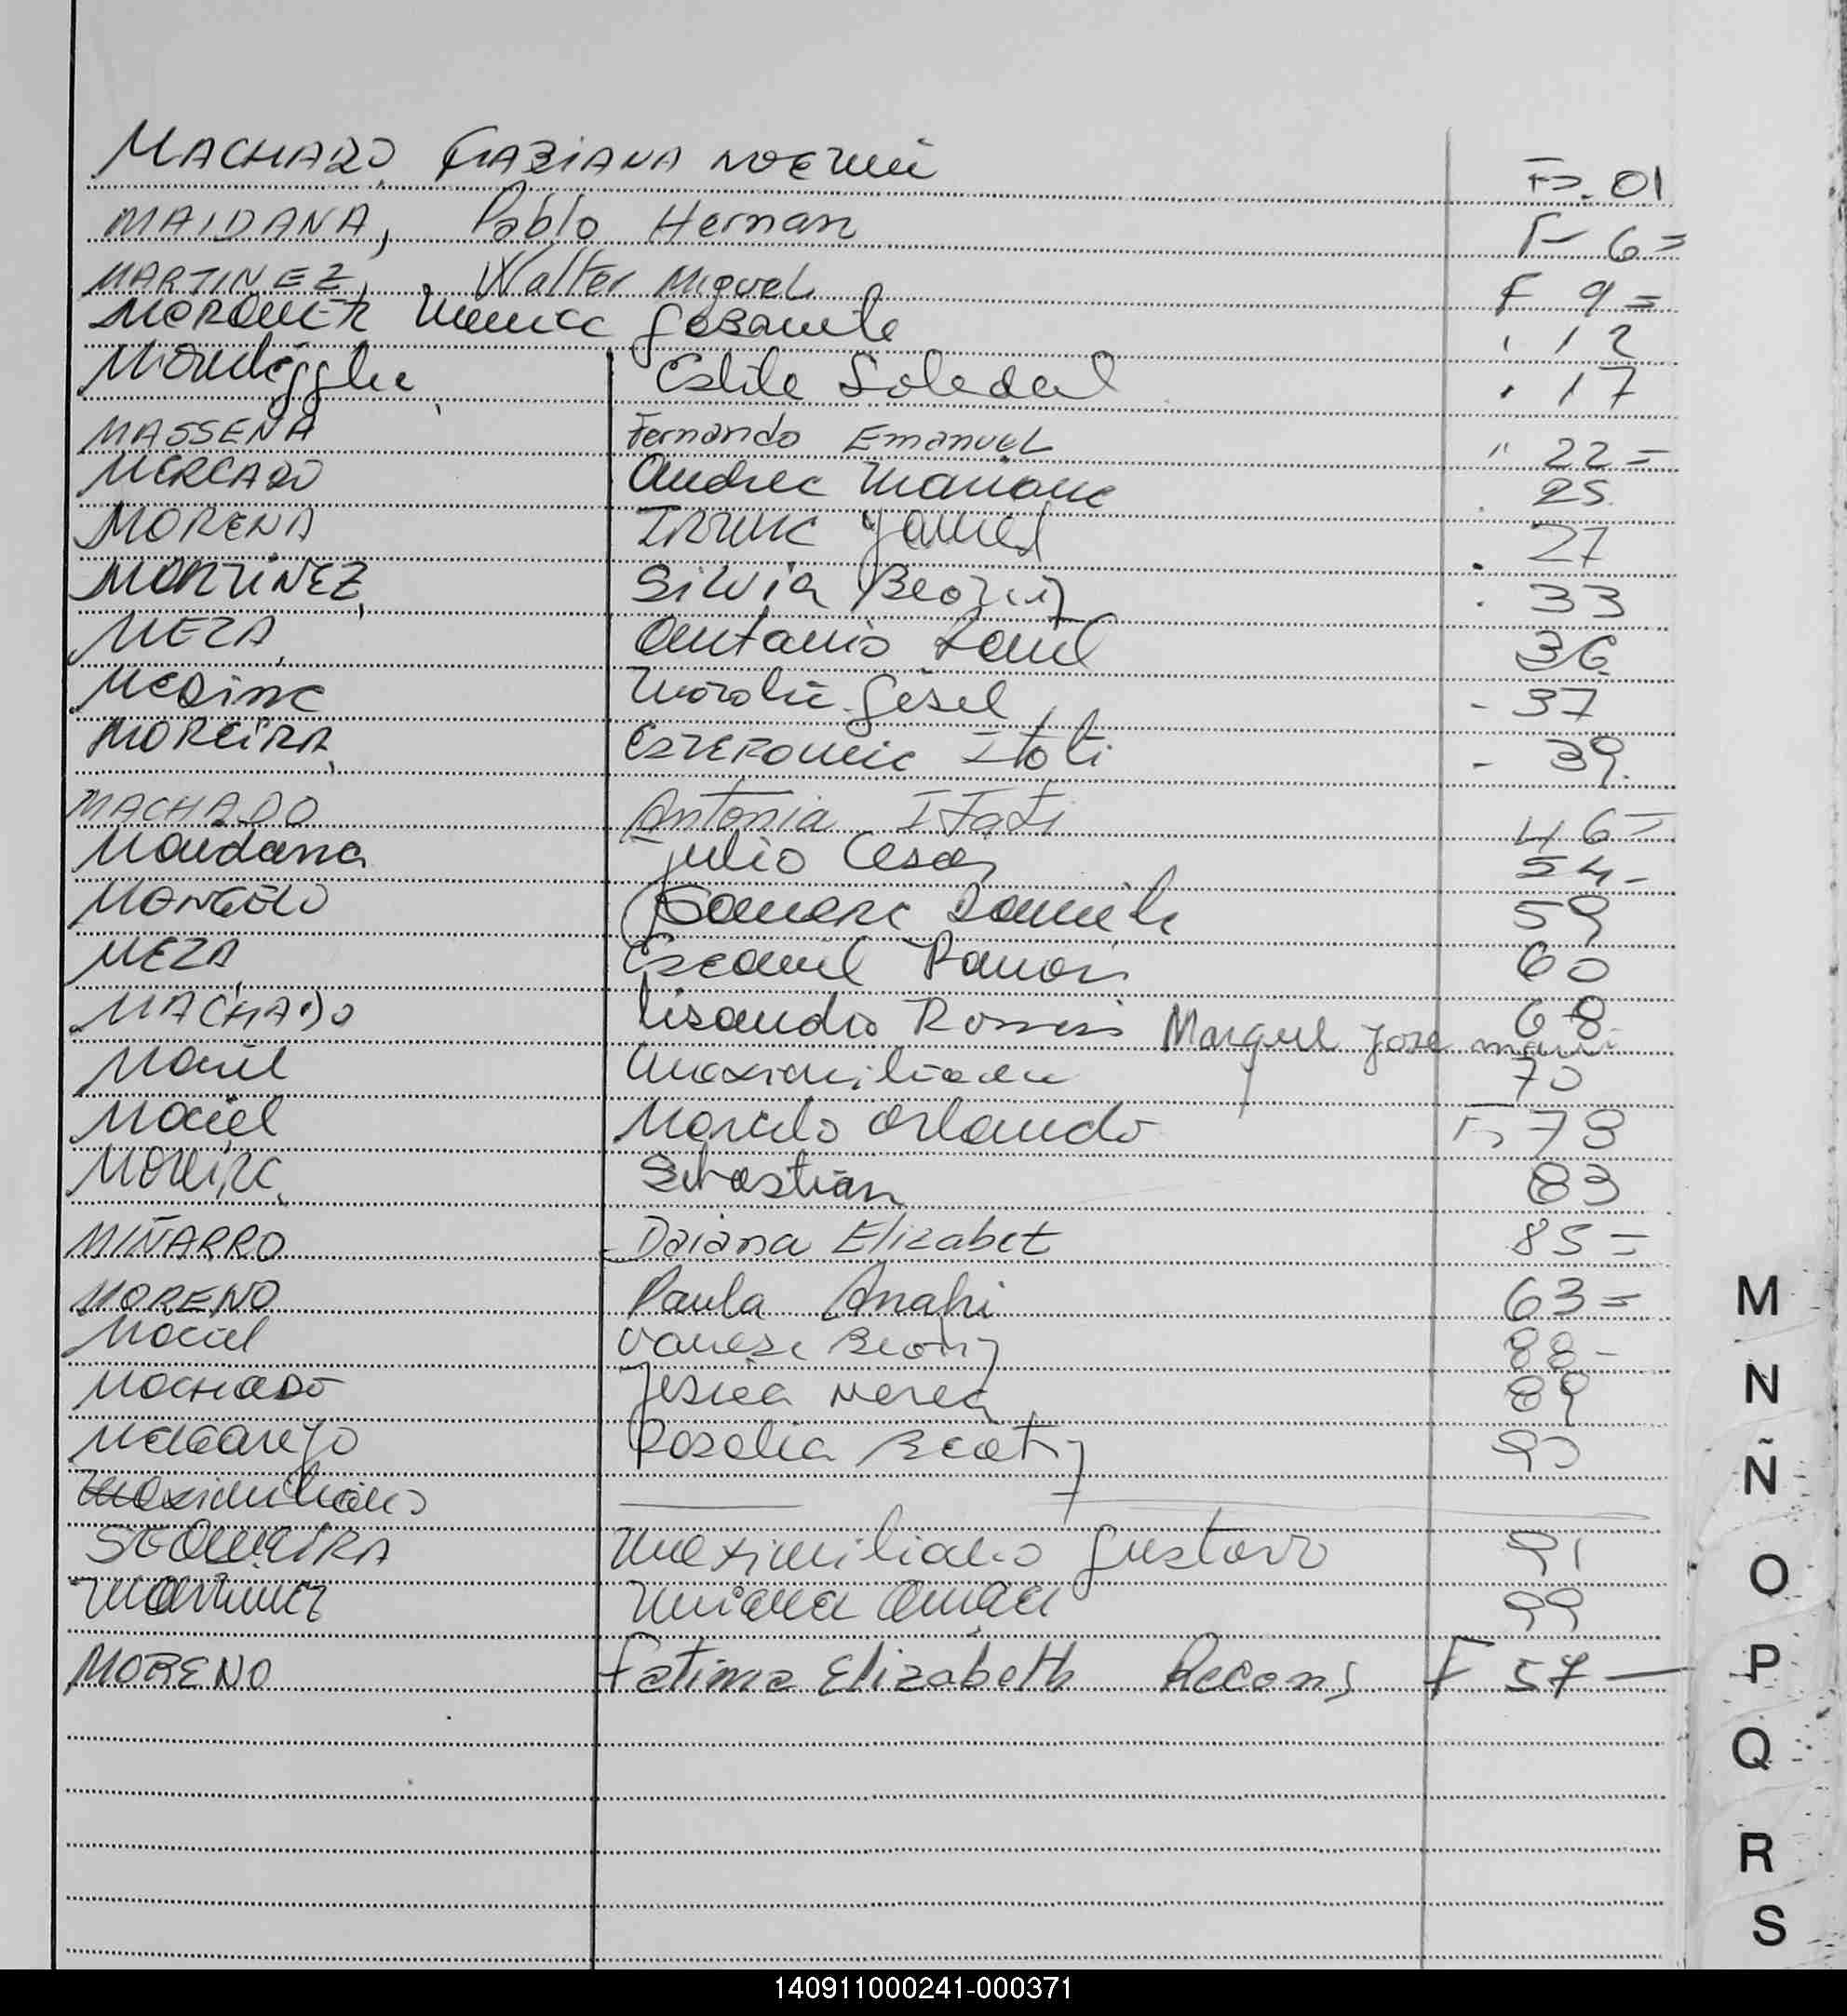 MACHADO, FABIANA NOEMI Fs. 01
MAIDANA, Pablo Hernan F- 6=
MARTINEZ, Walter Miguel F 9=
MARQUEZ Gisamile . 12
Soledad . 17
MASSENA Fernando Emanuel " 22=
MERCADO Andrea Mariana . 25
MORENA . 27
MARTINEZ, Silvia Beatriz . 33
MEZA, Antonio Raul 36
Medina Gisel - 37
MOREIRA, Itati - 39
MACHADO Antonia Itati 46=
Maidana Julio Cesar 54-
MONGELO Daniela 59
MEZA Ezequiel Ramon 60
MACHADO Lisandro Ramon 68
Marquez Jose
Maciel Maximiliano 70
Maciel Marcelo Orlando Fs 78
Moreira, Sebastian 83
MIÑARRO Daiana Elizabet 85=
MORENO Paula Anahi 63=
Maciel Vanesa Beatriz 88-
Machado Jesica Nerea 89
Melgarejo Rosalia Beatriz 90
Maximiliano
SEQUEIRA Maximiliano Gustavo 91
Martinez 99
MORENO Fatima Elizabeth Recons F 57 —
M
N
Ñ
O
P
Q
R
S
140911000241-000371